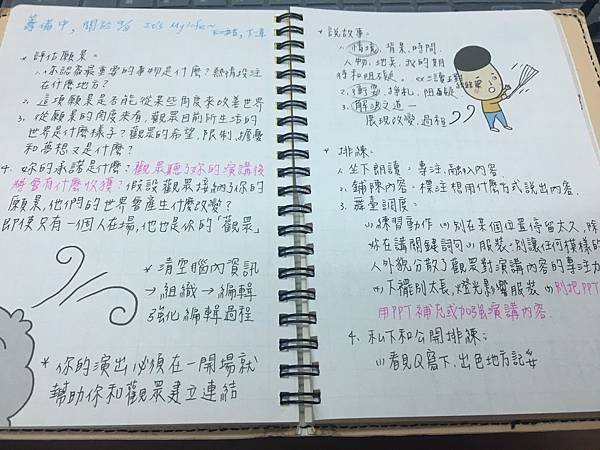 籌備中,開始 It's My life~
* 評估願景:
1. 你認為最重要的事物是什麼?熱情投注
在什麼地方?
2. 這項願景是否能從某些角度來改善世界
3. 從願景的角度來看,觀眾目前所生活的
世界是什麼樣子?觀眾的希望,限制,擔憂
和夢想又是什麼?
4. 妳的承諾是什麼?觀眾聽了妳的演講後
將會有什麼收獲?假設觀眾接納了你的
願景,他們的世界會產生什麼改變?
即使只有一個人在場,他也是你的「觀眾」
* 清空腦內資訊
→組織→編輯
強化編輯過程
* 你的演出必須在一開場就
幫助你和觀眾建立連結
* 說故事:
1. 情境,背景,時間
人物,地點,我的期
待和阻礙。
2. 衝突,掙扎,阻礙
3. 解決之道-
展現改變,過程
* 排練:
1. 坐下朗讀。專注,融入內容
2. 鋪陳內容。標注想用什麼方式說出內容.
3. 舞台調度:
(1)練習動作 (2)別在某個位置停留太久,除
妳在講關鍵詞句 (3)服裝:別讓任何模樣的
人外貌分散了觀眾對演講內容的專注力
(4)下襬別太長,燈光影響服裝 (5)別把PPT
用PPT補充或加強演講內容.
4. 私下和公開排練:
(1)看見Q寫下,出色地方記妥